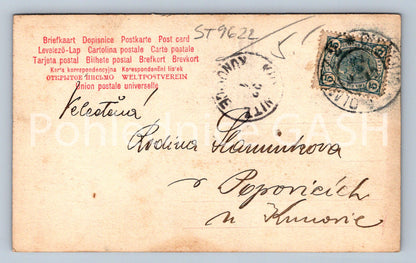 ST9622
Briefkaart Dopisnice Postkarte Post card
Levelező-Lap Cartolina postale Carte postale
Tarjeta postal Bilhete postal Brefkort Brevkort
Karta korrespondencyjna Korespondenční lístek
ОТКРЫТОЕ ПИСЬМО WELTPOSTVEREIN
Union postale universelle
Velectěná
Rodina Slaminkova
v Popovicích
u Kunovic